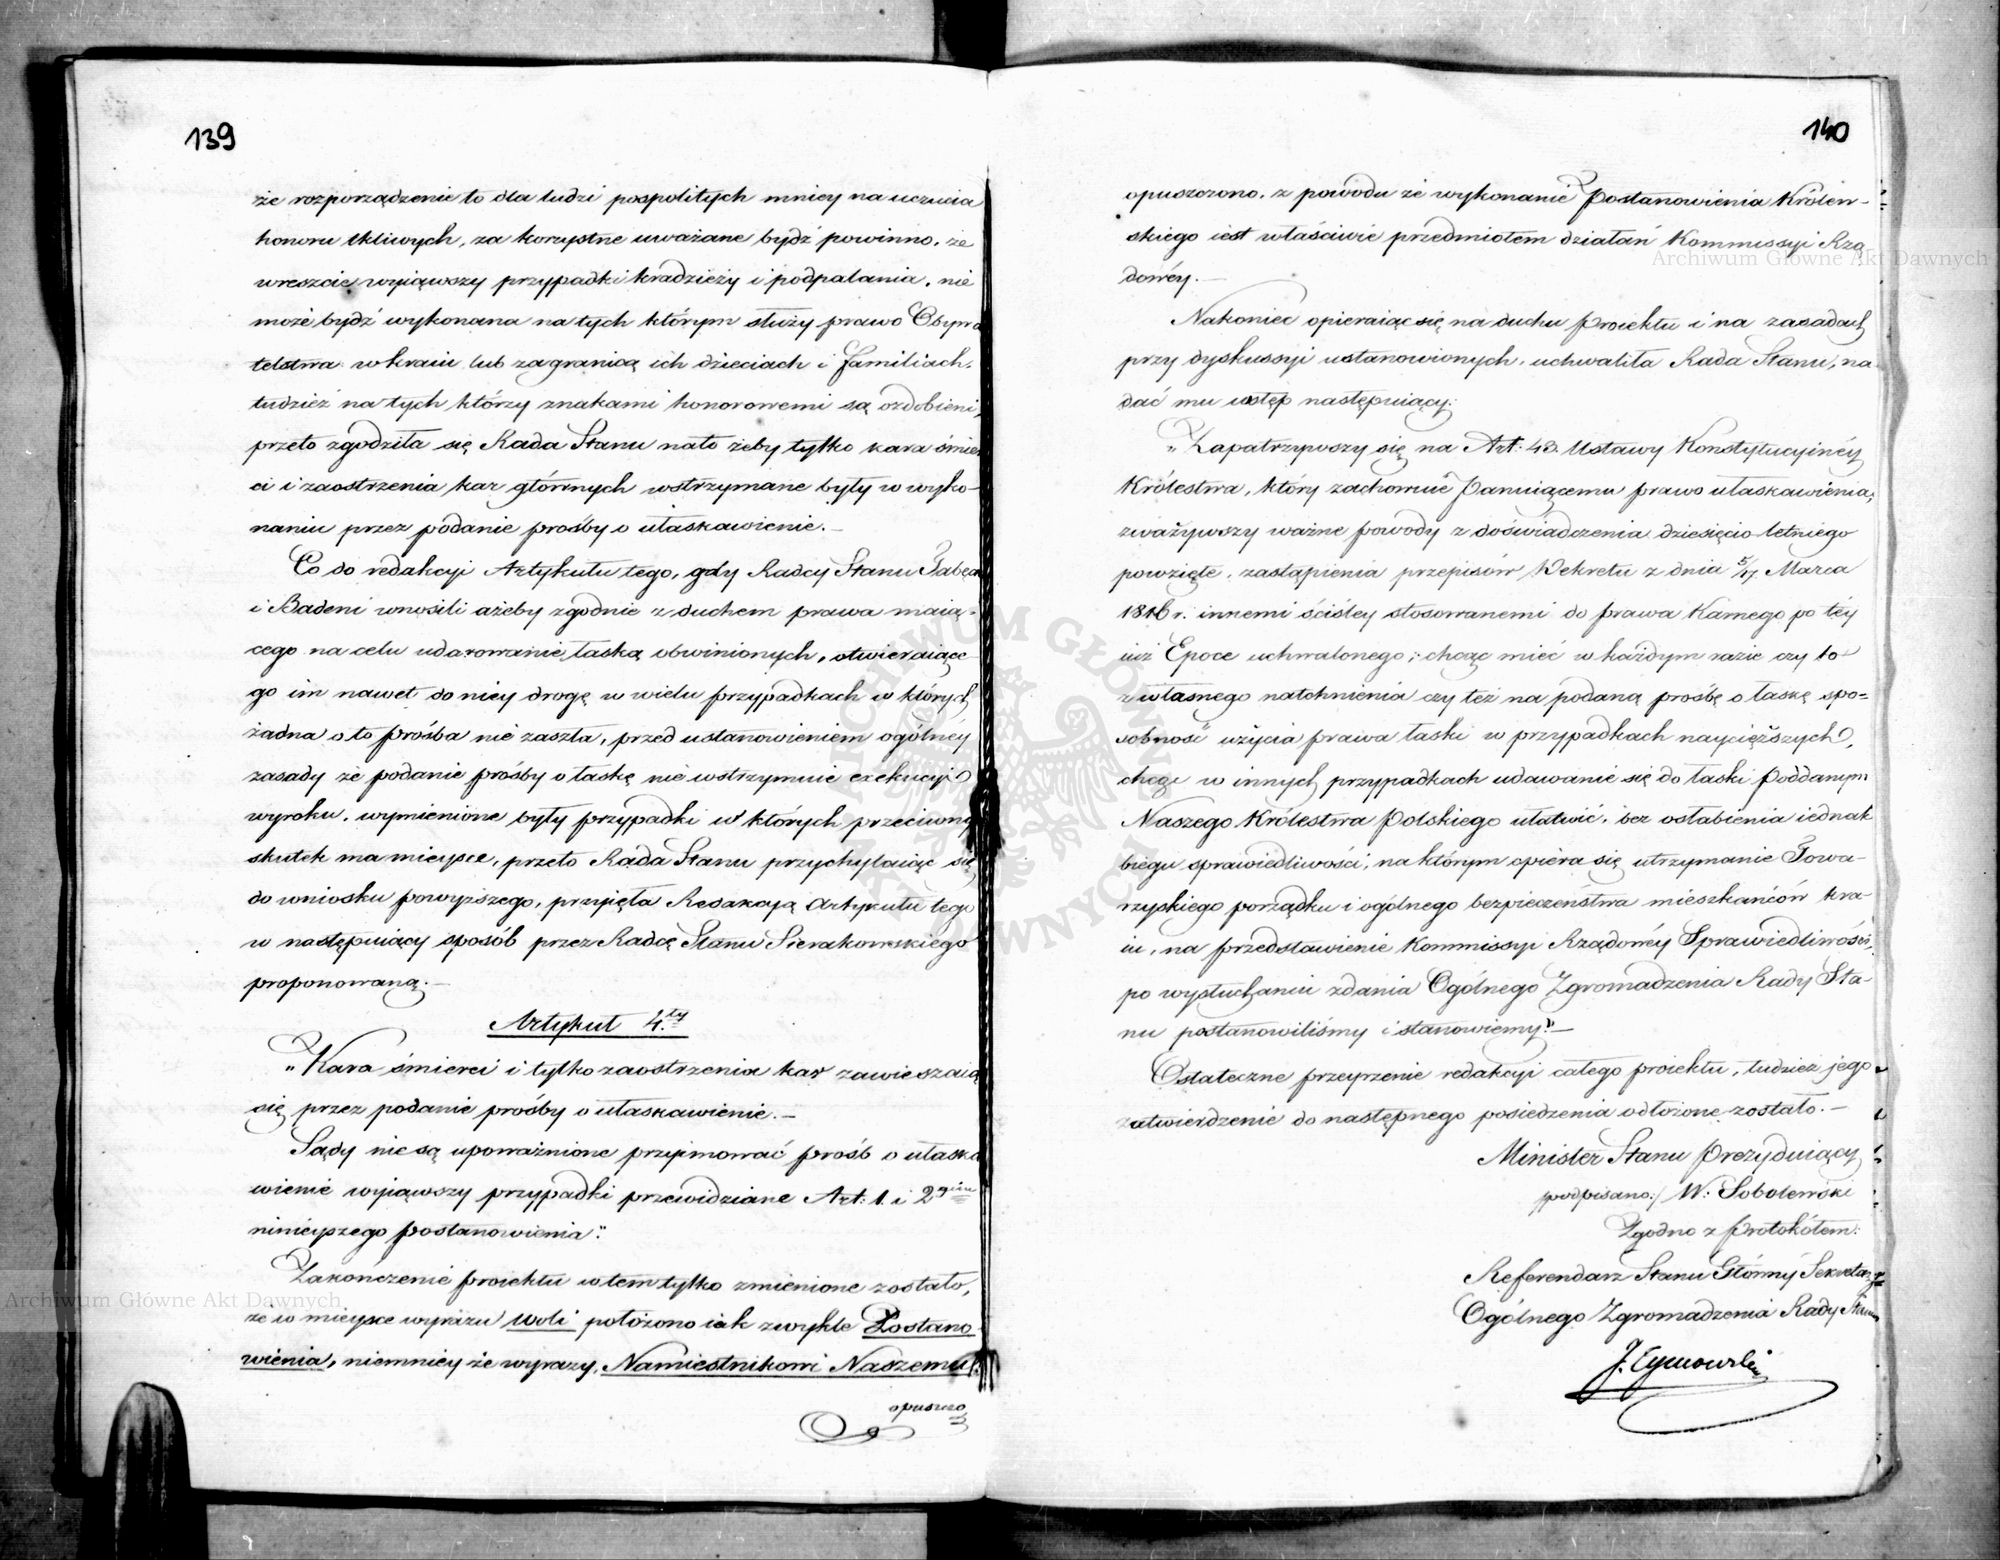 139
że rozporządzenie to dla ludzi pospolitych mniey na uczucia
honoru tkliwych, za korzystne uważane bydź powinno, że
wreszcie wyiąwszy przypadki kradzieży i podpalania, nie
może bydź wykonana na tych którym służy prawo Obywa
telstwa w kraiu lub zagranicą ich dzieciach i familiach,
tudzież na tych którzy znakami honorowemi są ozdobieni,
przeto zgodziła się Rada Stanu na to żeby tylko kara śmier
ci i zaostrzenia kar głównych wstrzymane były w wyko-
naniu przez podanie prośby o ułaskawienie.—
Co do redakcyi Artykułu tego, gdy Radcy Stanu Gabęcki
i Badeni wnosili ażeby zgodnie z duchem prawa maią-
cego na celu udarowanie łaską obwinionych, otwieraiące-
go im nawet do niey drogę w wielu przypadkach w których
żadna o to prośba nie zaszła, przed ustanowieniem ogólnéy
zasady że podanie prośby o łaskę nie wstrzymuie exekucyi
wyroku, wymienione były przypadki w których przeciwny
skutek ma mieysce, przeto Rada Stanu przychylaiąc się
do wniosku powyższego, przyięła Redakcyą Artykułu tego
w następuiący sposób przez Radcę Stanu Sierakowskiego
proponowaną.—
Artykuł 4.ty
„Kara śmierci i tylko zaostrzenia kar zawieszaią
się przez podanie prośby o ułaskawienie.—
Sądy nie są upoważnione przyimować próśb o ułaska
wienie wyiąwszy przypadki przewidziane Art: 1. i 2gim
ninieyszego postanowienia".
Zakończenie proiektu w tem tylko zmienione zostało,
że w mieysce wyrazu woli położono iak zwykle Postano
wienia, niemniey że wyrazy, Namiestnikowi Naszemu,
opuszczo
140
opuszczono, z powodu że wykonanie Postanowienia Królew-
skiego iest właściwie przedmiotem działań Kommissyi Rzą
dowéy.—
Nakoniec opieraiąc się na duchu proiektu i na zasadach
przy dyskussyi ustanowionych, uchwaliła Rada Stanu, na-
dać mu wstęp następuiący:
„Zapatrzywszy się na Art: 43. Ustawy Konstytucyinéy
Królestwa, który zachowuie Panuiącemu prawo ułaskawienia,
zważywszy ważne powody z doświadczenia dziesięcio letniego
powzięte, zastąpienia przepisów Dekretu z dnia 5/17 Marca
1816 r. innemi ściśley stosowanemi do prawa Karnego po téy
iuż Epoce uchwalonego; chcąc mieć w każdym razie czy to
z własnego natchnienia czy też na podaną prośbę o łaskę spo=
sobność użycia prawa łaski w przypadkach naycięższych,
chcąc w innych przypadkach udawanie się do łaski Poddanym
Naszego Królestwa Polskiego ułatwić, bez osłabienia iednak
biegu sprawiedliwości, na którym opiéra się utrzymanie Towa-
rzyskiego porządku i ogólnego bezpieczeństwa mieszkańców kra-
iu, na przedstawienie Kommissyi Rządowéy Sprawiedliwości,
po wysłuchaniu zdania Ogólnego Zgromadzenia Rady Sta-
nu postanowiliśmy i stanowiemy."—
Ostateczne przeyrzenie redakcyi całego proiektu, tudzież jego
zatwierdzenie do następnego posiedzenia odłożone zostało.—
Minister Stanu Prezyduiący
/podpisano:/ W. Sobolewski
Zgodno z Protokółem:
Referendarz Stanu Główny Sekretarz
Ogólnego Zgromadzenia Rady Stanu
J. Tymowski
Archiwum Główne Akt Dawnych
Archiwum Główne Akt Dawnych
ARCHIWUM GŁÓWNE AKT DAWNYCH